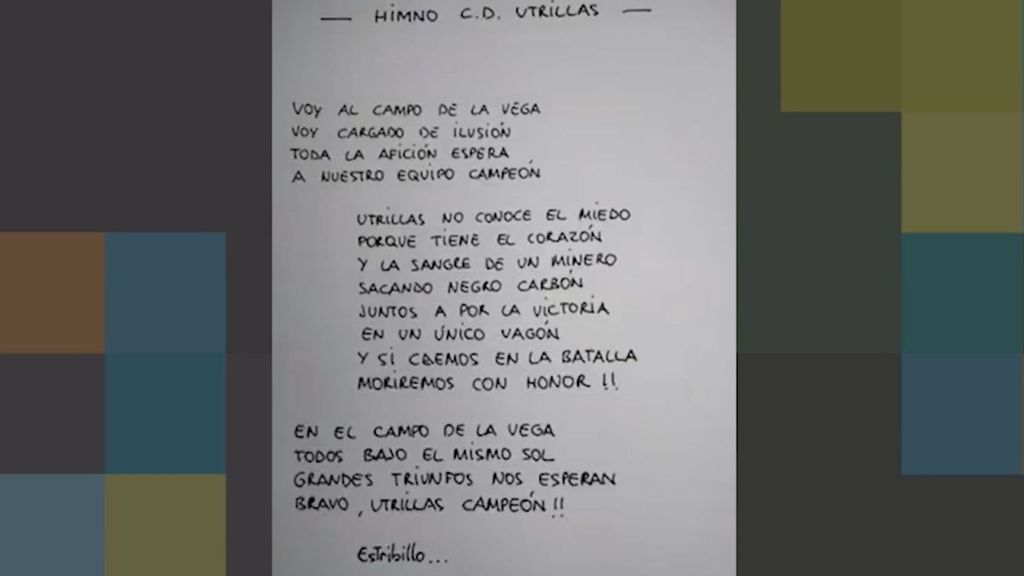 — HIMNO C.D. UTRILLAS —
VOY AL CAMPO DE LA VEGA
VOY CARGADO DE ILUSIÓN
TODA LA AFICIÓN ESPERA
A NUESTRO EQUIPO CAMPEÓN
UTRILLAS NO CONOCE EL MIEDO
PORQUE TIENE EL CORAZÓN
Y LA SANGRE DE UN MINERO
SACANDO NEGRO CARBÓN
JUNTOS A POR LA VICTORIA
EN UN ÚNICO VAGÓN
Y SI CAEMOS EN LA BATALLA
MORIREMOS CON HONOR !!
EN EL CAMPO DE LA VEGA
TODOS BAJO EL MISMO SOL
GRANDES TRIUNFOS NOS ESPERAN
BRAVO, UTRILLAS CAMPEÓN !!
Estribillo...